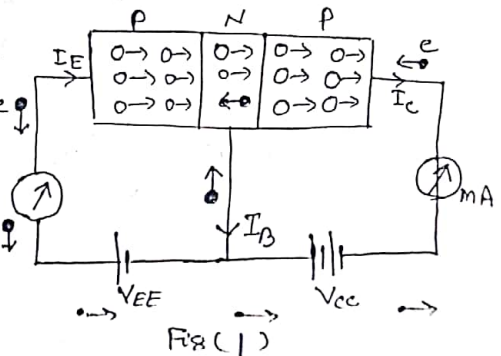 P N P
I_E e
e I_C
mA
I_B
V_EE V_CC
Fig(1)